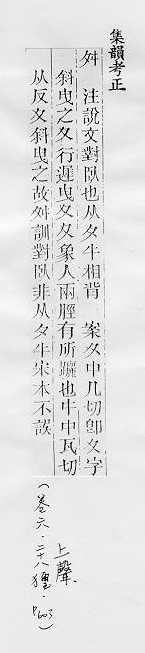 集韻考正
舛 注說文對臥也从夕牛相背 案夂中几切卽文字
斜曳之夂行遲曳夂夂象人兩脛有所躧也㐄中瓦切
从反夂斜曳之故舛訓對臥非从夕牛宋本不誤
上聲
(卷六·二十八獮·P603)